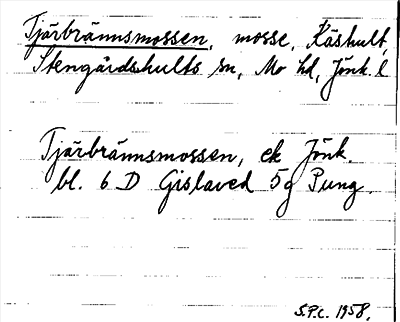 Tjärbrännsmossen, mosse, Käshult,
Stengårdshults sn, Mo hd, Jönk. l
Tjärbrännsmossen, ek Jönk.
bl. 6 D Gislaved 5g Pung.
S.P.C. 1958.